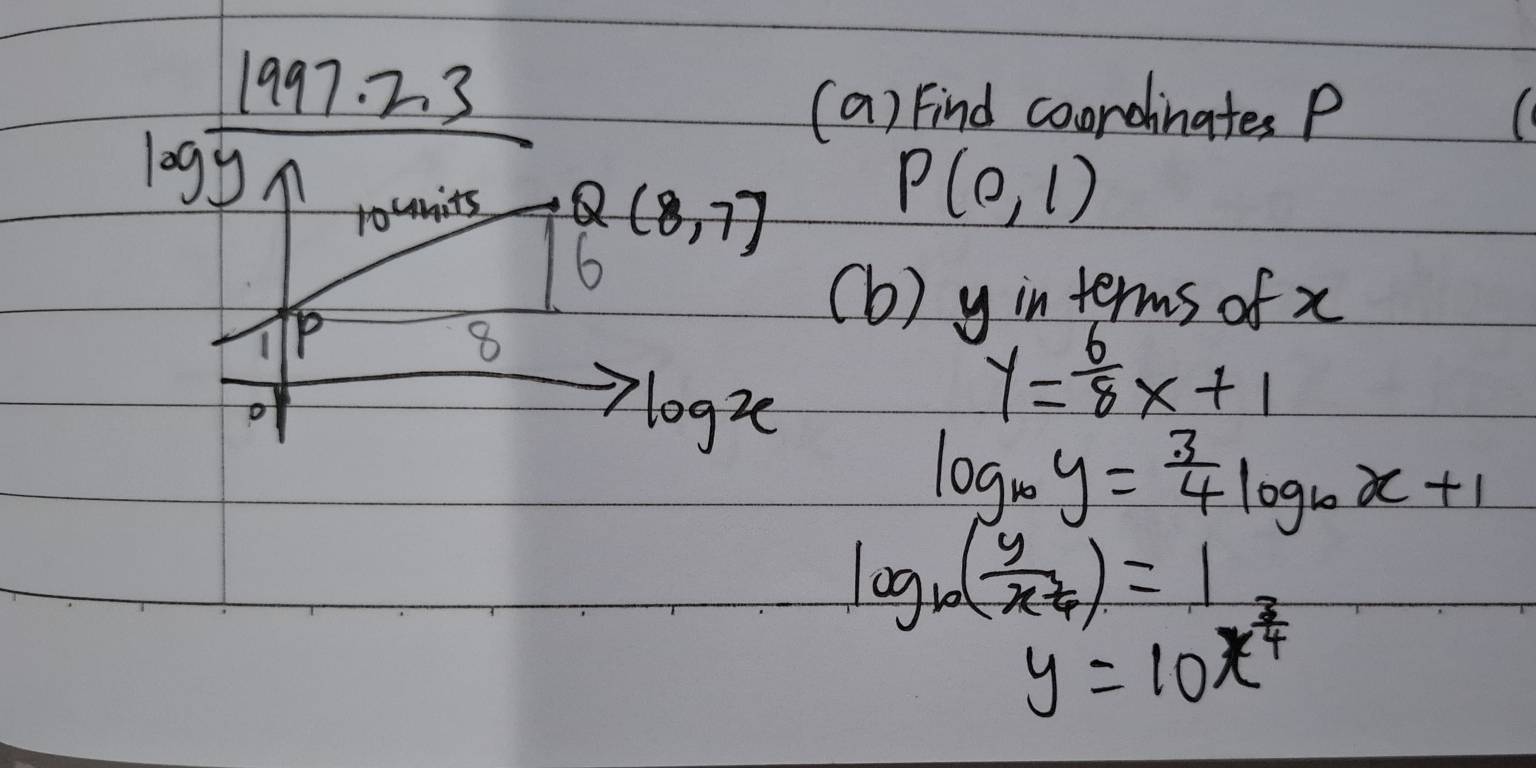 1997.2.3
log y
10 units
Q (8,7)
6
1 P
8
0
log x
(a) Find coordinates P
(
P(0,1)
(b) y in terms of x
Y = 6/8 X + 1
log₁₀ y = 3/4 log₁₀ x + 1
log₁₀(y/x^(3/4)) = 1
y = 10x^(3/4)